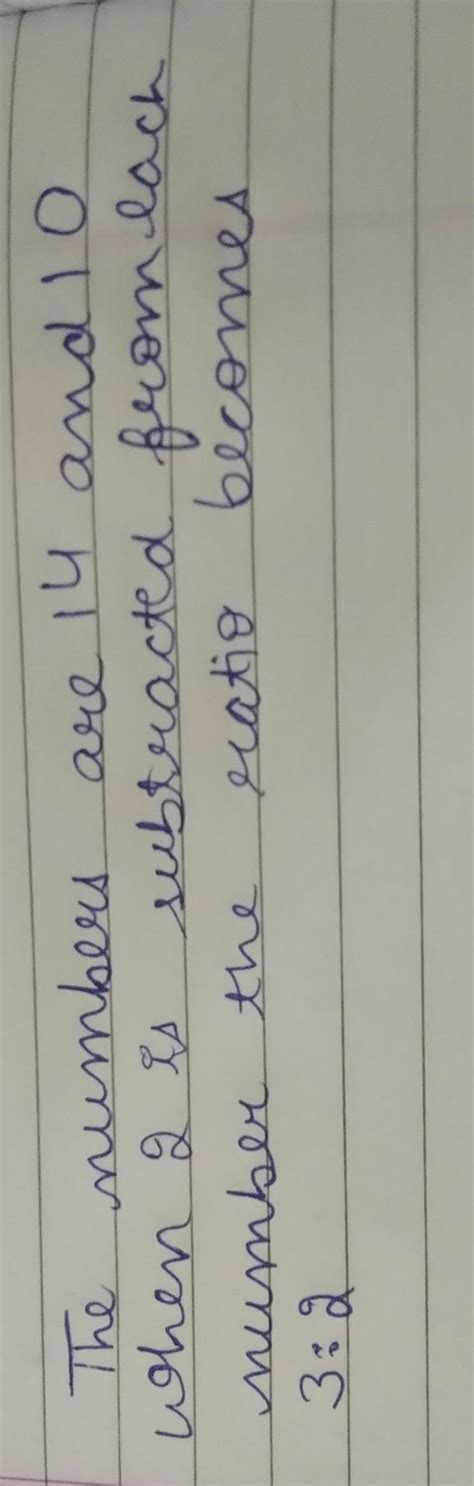 The numbers are 14 and 10
when 2 is subtracted from each
number the ratio becomes
3:2